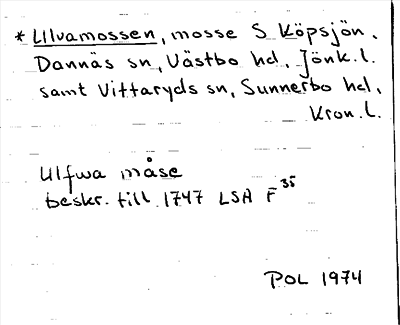 * Ulvamossen, mosse S Köpsjön,
Dannäs sn, Västbo hd, Jönk. l.
samt Vittaryds sn, Sunnerbo hd,
Kron. l.
Ulfwa måse
beskr. till 1747 LSA F 35
POL 1974